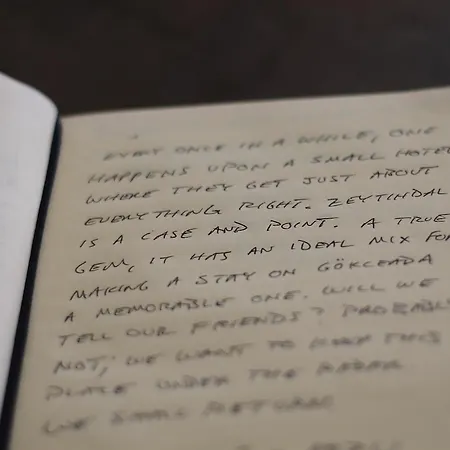 EVERY ONCE IN A WHILE, ONE
HAPPENS UPON A SMALL HOTEL
WHERE THEY GET JUST ABOUT
EVERYTHING RIGHT. ZEYTINDAL
IS A CASE AND POINT. A TRUE
GEM, IT HAS AN IDEAL MIX FOR
MAKING A STAY ON GÖKCEADA
A MEMORABLE ONE. WILL WE
TELL OUR FRIENDS? PROBABLY
NOT, WE WANT TO KEEP THIS
PLACE UNDER THE RADAR
WE SHALL RETURN